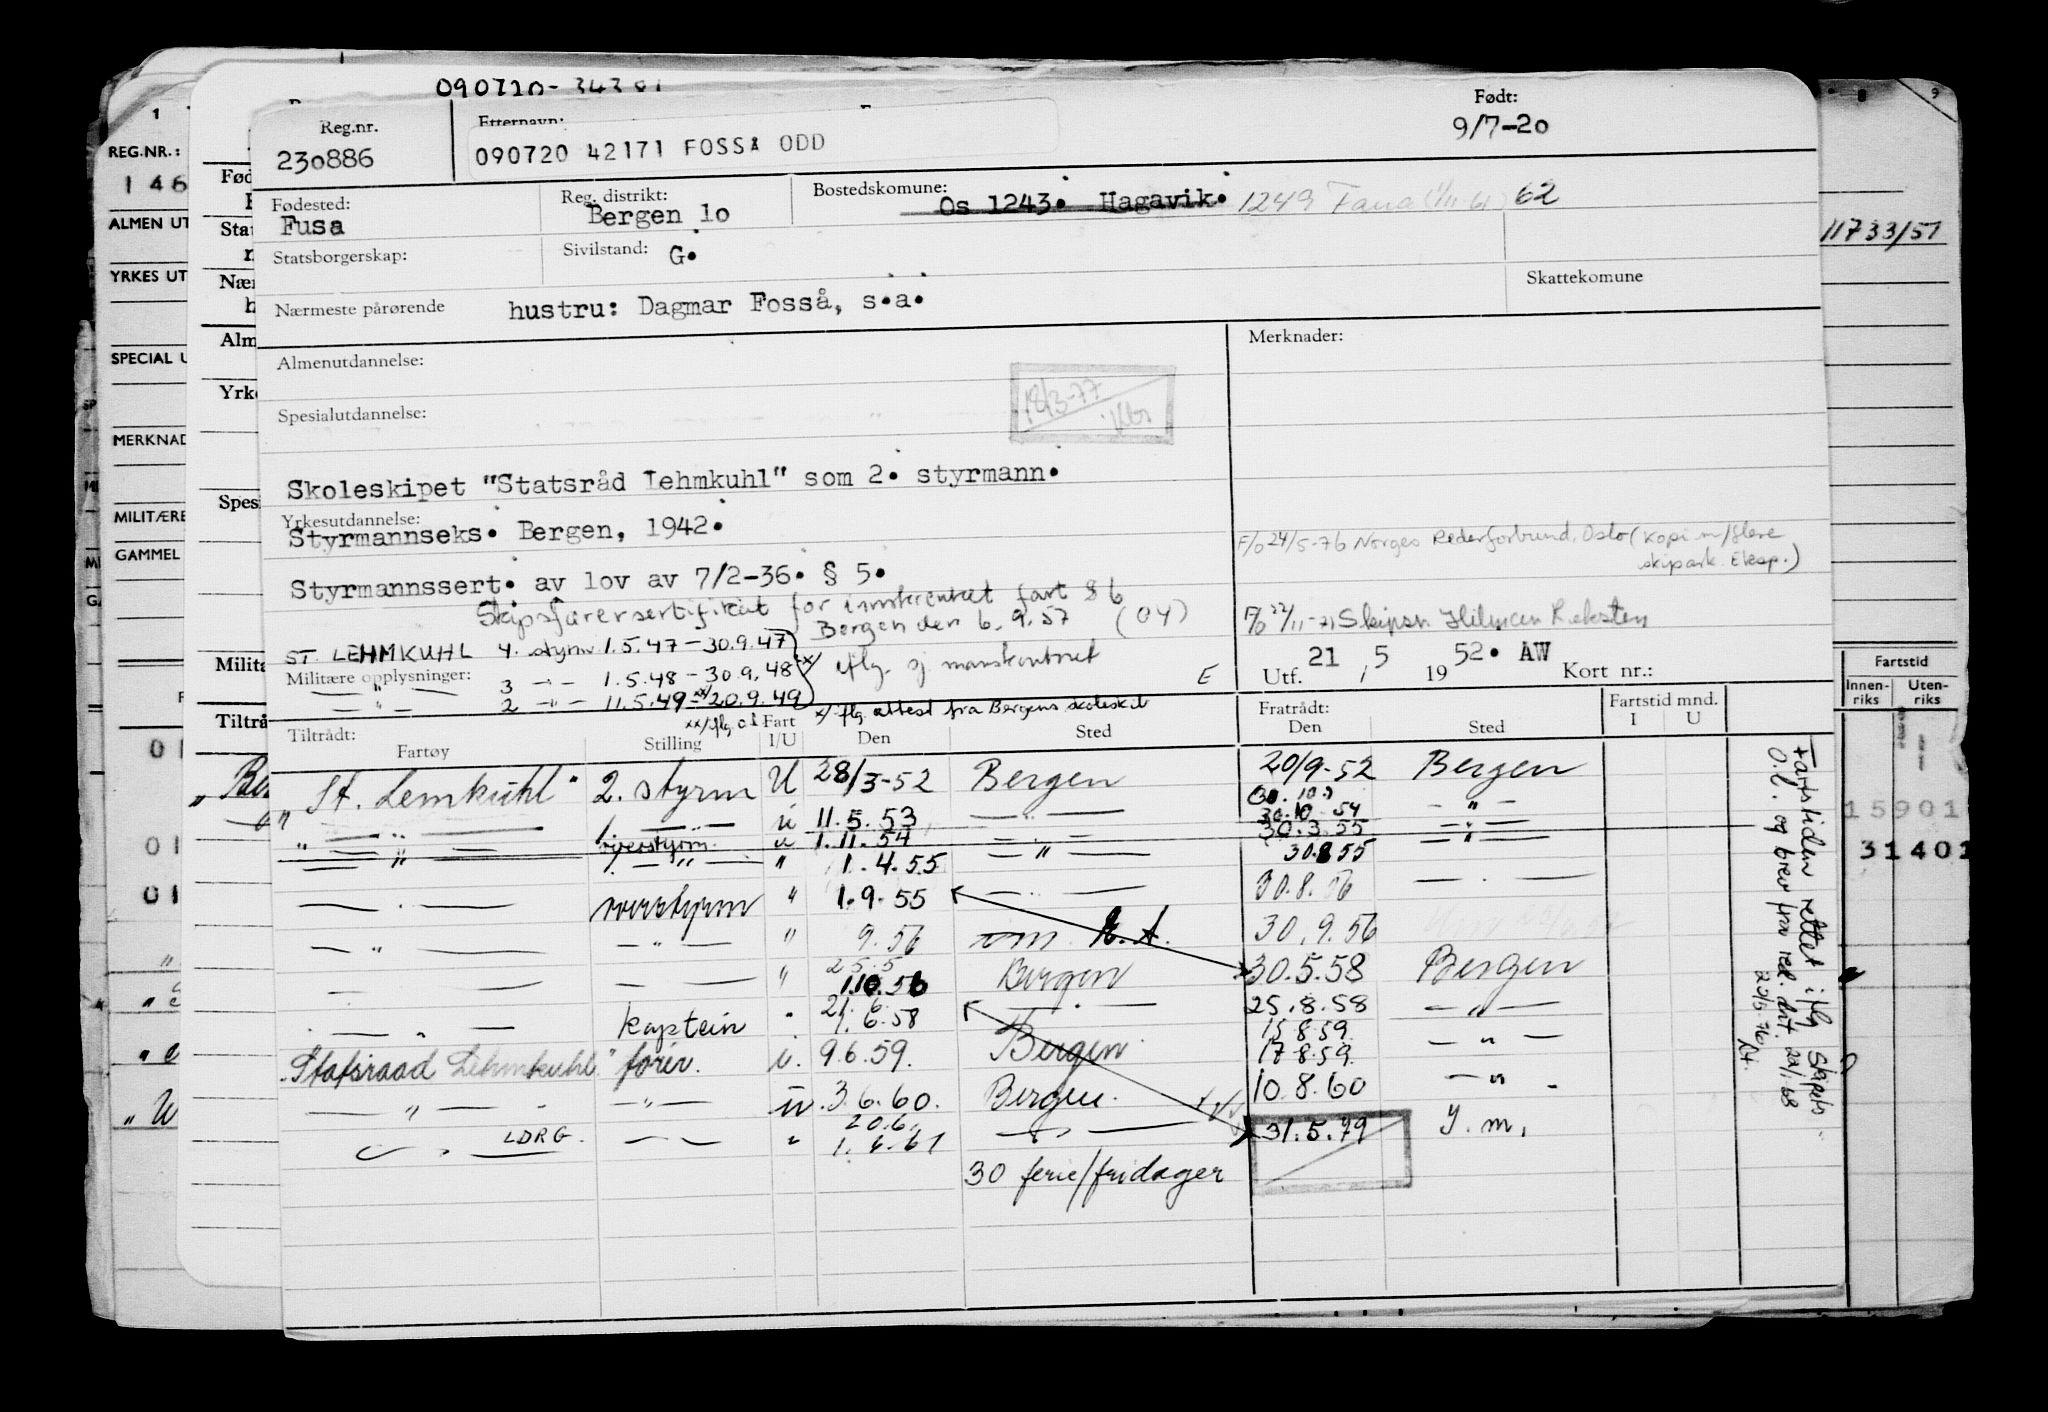 090720-34301
Reg.nr.
Etternavn:
Født:
230886
090720 42171 FOSSÅ ODD
9/7-20
Fødested:
Reg. distrikt:
Bostedskomune:
Fusa
Bergen 1o
Os 1243. Hagavik. 1249 Fana (1/11-61) 62
Statsborgerskap:
Sivilstand: G.
Nærmeste pårørende
hustru: Dagmar Fosså, s.a.
Skattekomune
Almenutdannelse:
Merknader:
18/3-77
Spesialutdannelse:
Skoleskipet "Statsråd Lehmkuhl" som 2. styrmann.
Yrkesutdannelse:
Styrmannseks. Bergen, 1942.
F/o 24/5-76 Norges Rederforbund, Oslo (Kopi m/flere
skipark. Eksp.)
Styrmannssert. av lov av 7/2-36. § 5.
Skipsførersertifikat for innskrenket fart § 6
Bergen den 6.9.57 (04)
F/o 22/11-71 Skipsr. Hilmar Reksten
ST. LEHMKUHL 4. styrm 1.5.47-30.9.47
Militære opplysninger:
— " — 3 -"- 1.5.48-30.9.48
— " — 2 -"- 11.5.49-20.9.49
x/ iflg. ej mønskontoret
E
Utf. 21 / 5 1952. AW Kort nr.:
xx/ iflg. o.l
x/ iflg. attest fra Bergens skoleskib
Tiltrådt:
Fartøy
Stilling
Fart I/U
Den
Sted
Fratrådt:
Den
Sted
Fartstid mnd.
I U
"St. Lemkuhl" 2. styrm U 28/3-52 Bergen 20/9-52 Bergen
— " — 1. — " — u 11.5.53 — " — 30.10.54 — " —
" — " — overstyrm. u 1.11.54 — " — 30.3.55 — " —
— " — 1. — " — " 1.4.55 — " — 30.8.55 — " —
— " — overstyrm " 1.9.55 — " — 30.8.56 — " —
— " — — " — " 9.56 30.9.56
25.5
— " — — " — " 1.10.56 Bergen 30.5.58 Bergen
21.6.
— " — kaptein " 1.6.58 — " — 25.8.58 — " —
15.8.59.
"Statsraad Lehmkuhl" fører. u. 9.6.59. Bergen. 17.8.59. — " —
— " — — " — u. 3.6.60. Bergen. 10.8.60 — " —
20.6.
— " — LDRG. — " — " 1.6.61 — " — 31.5.79 Y.m.
30 ferie/fridager
Fartstiden rettet iflg Skipets
o.l. og brev fra red. dat. 22/1 68
REG.NR.:
146
ALMEN UT
YRKES UT
SPECIAL U
MERKNAD
MILITÆRE
GAMMEL
Fød
Stat
Nær
Alm
Yrke
Spesi
Milita
Tiltrå
11733/51
Fartstid
Innen-
riks
Uten-
riks
15901
31401